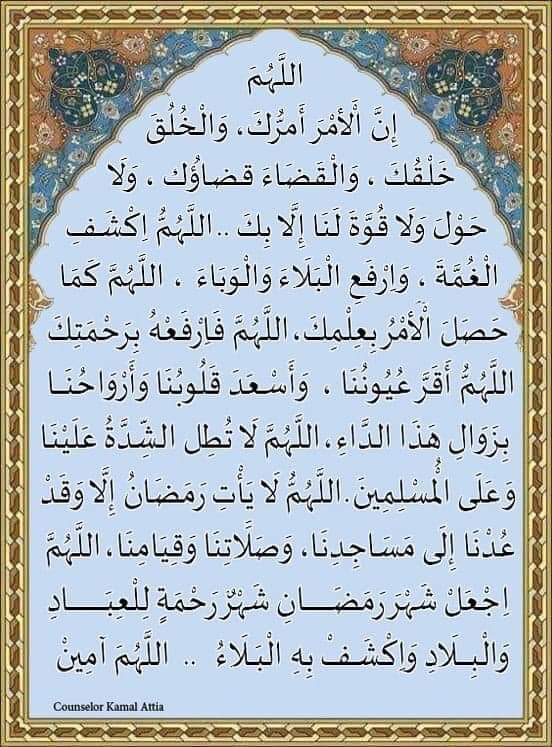 اللَّهُمَ
إِنَّ الْأَمْرَ أَمرُّكَ، وَالْخُلُقَ
خَلْقُكَ ، وَالْقَضَاءَ قضاؤُك ، وَلَا
حَوْل وَلَا قُوَّةَ لَنَا إِلَّا بِكَ .. اللَّهُمُّ اِكْشَفِ
الْغُمَّةَ ، وَاِرْفَعِ الْبَلَاءَ وَالْوَبَاءَ ، اللَّهُمَّ كَمَا
حَصَلَ الْأَمْرُ بِعِلْمِكَ، اللَّهُمَّ فَاِرْفَعْهُ بِرَحْمَتِكَ
اللَّهُمُّ أَقَرَّ عُيُونُنَا ، وَأَسْعَدَ قَلُوبُنَا وَأَرْوَاحُنَا
بِزَوَالِ هَذَا الدَّاءِ، اللَّهُمَّ لَا تُطِل الشِّدَّةُ عَلَيْنَا
وَعَلَى الْمُسْلِمِينَ. اللَّهُمُّ لَا يَأْتِ رَمَضَانُ إِلَّا وَقَدْ
عُدْنَا إِلَى مَسَاجِدِنَا، وَصَلَاتِنَا وَقِيَامِنَا، اللَّهُمَّ
اِجْعَلْ شَهْرَ رَمَضَـــانِ شَهْرٌ رَحْمَةٍ لِلْعِبَـــادِ
وَالْبِــلَادِ وَاِكْشَــفْ بِهِ الْبَلَاءُ .. اللَّهُمَ آمِينْ
Counselor Kamal Attia